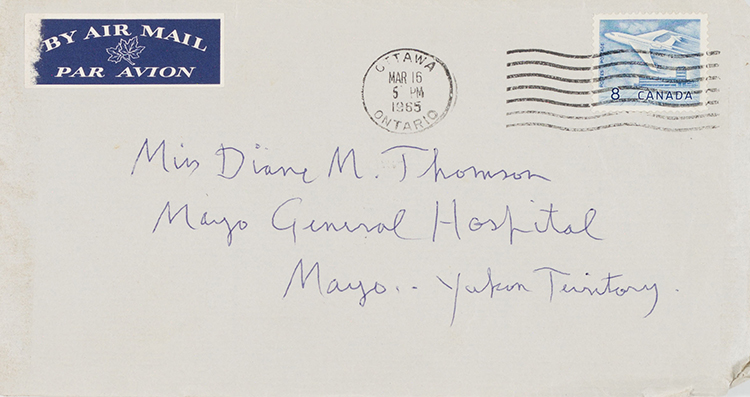 BY AIR MAIL
PAR AVION
OTTAWA
MAR 16
5 PM
1965
ONTARIO
8 CANADA
Miss Diane M. Thomson
Mayo General Hospital
Mayo.. - Yukon Territory.